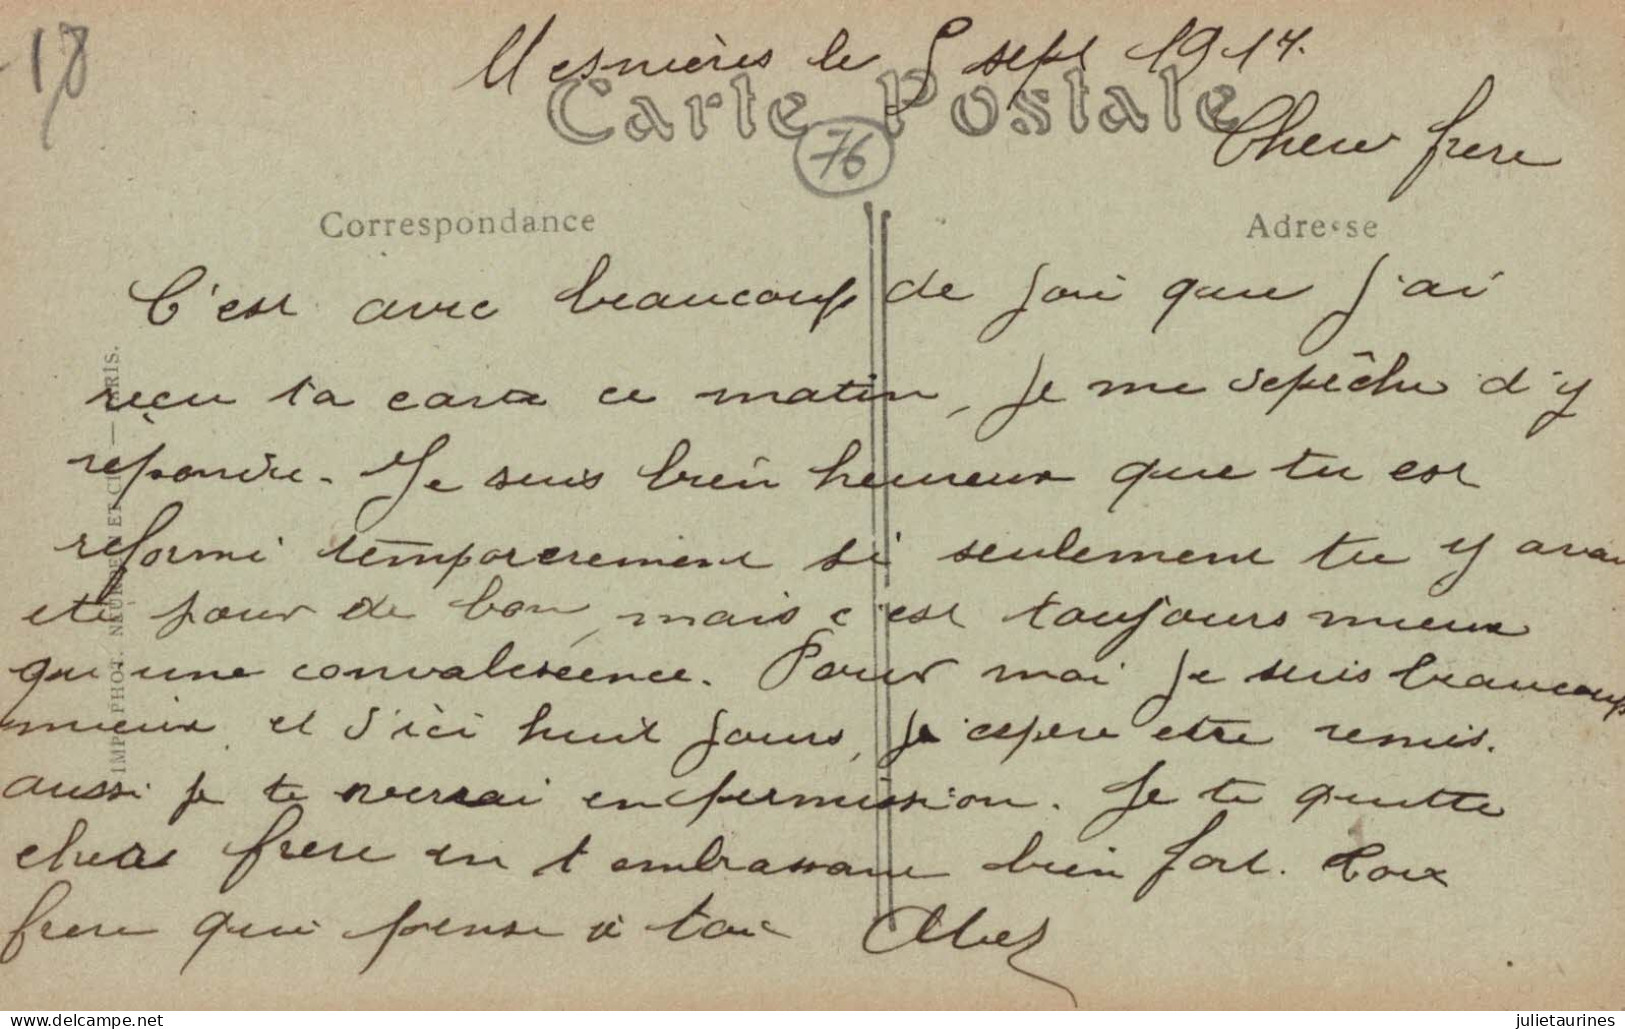 18
Mesnières le 5 sept 1917.
Carte Postale
76
Cher frere
Correspondance
Adresse
C'est avec beaucoup de joie que j'ai
reçu ta carte ce matin, je me dépêche d'y
répondre. Je suis bien heureux que tu est
reformé temporerement si seulement tu y avai
ete pour de bon, mais c'est toujours mieux
qu'une convalescence. Pour moi je suis beaucoup
mieux et d'ici huit jours, je espere etre remis.
aussi je te verrai en permission. Je te quitte
cher frere en t embrassant bien fort. Ton
frere qui pense à toi Abel
IMP. PHOT. NEURDEIN ET CIE — PARIS.
delcampe.net
julietaurines